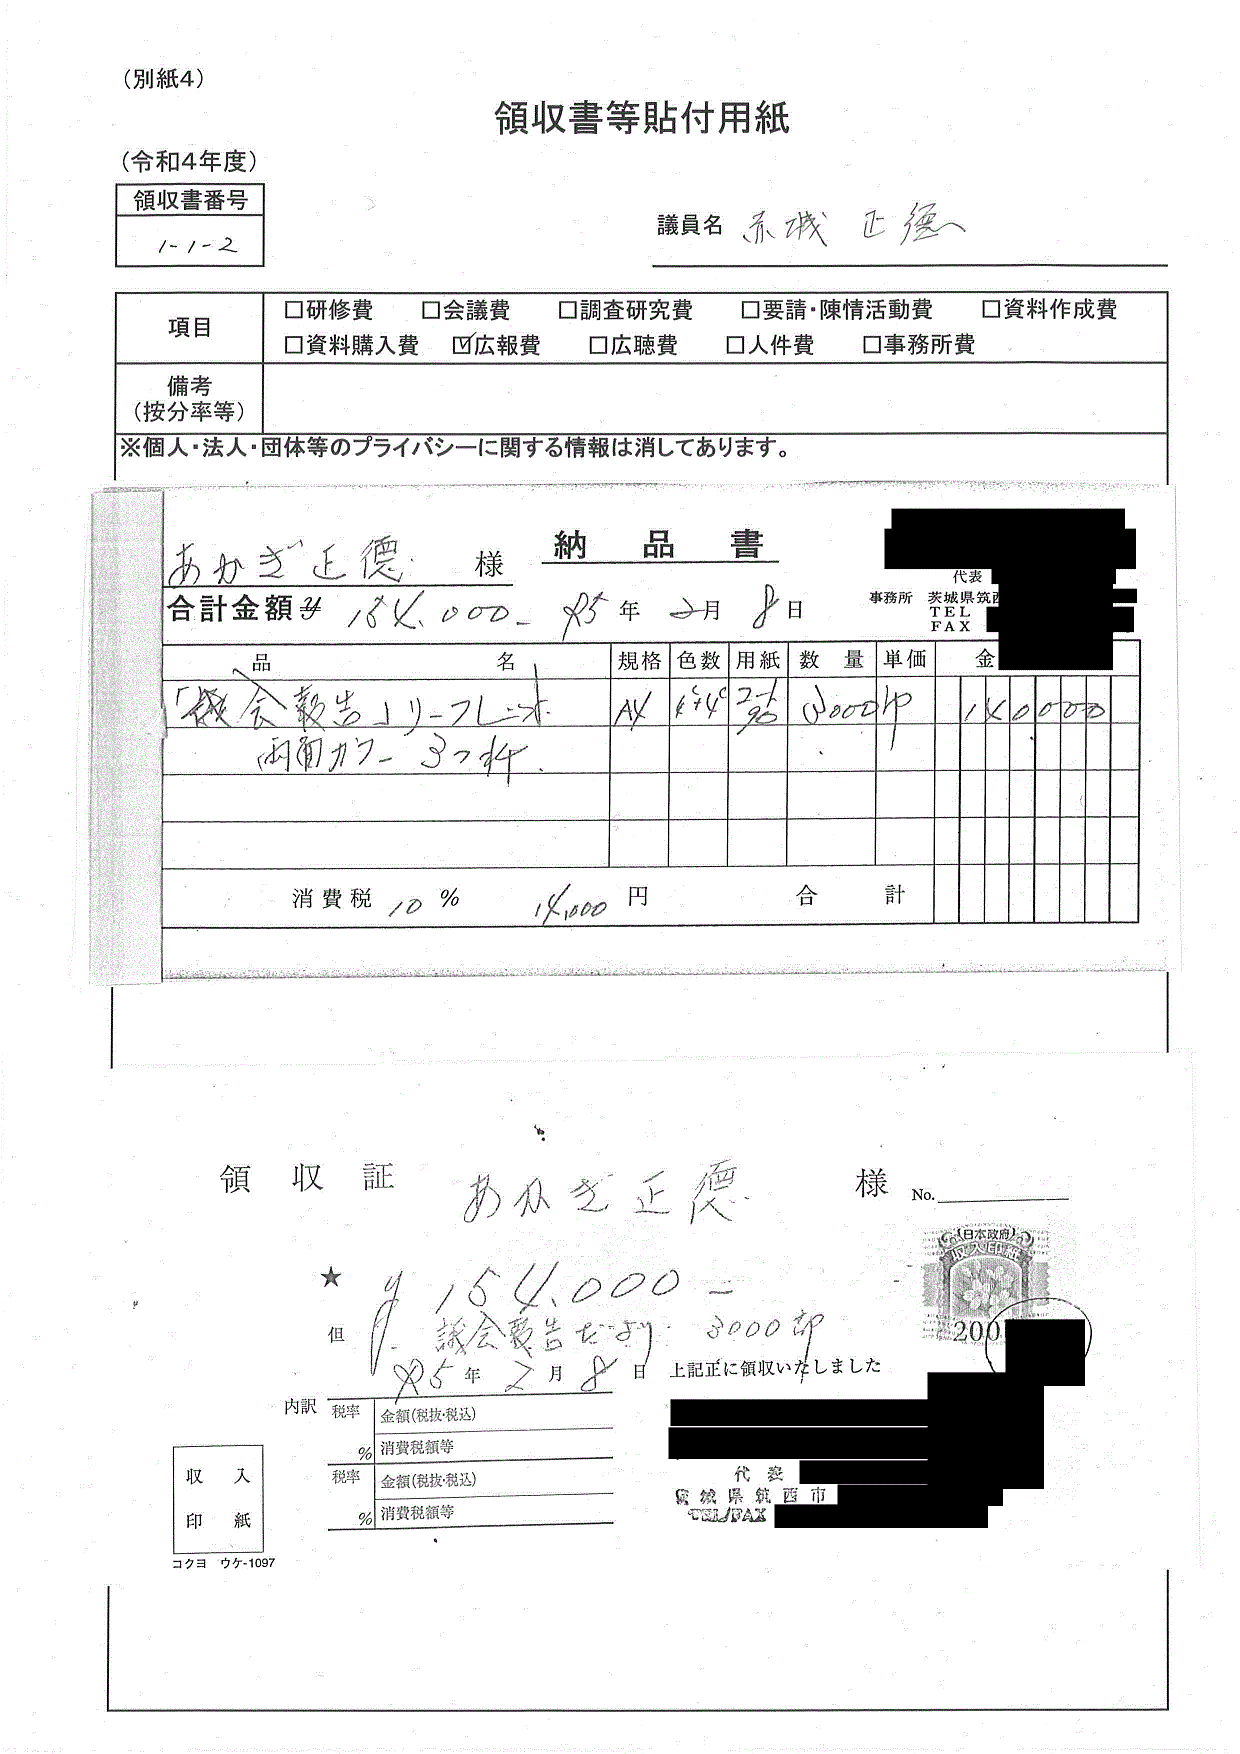 （別紙4）
領収書等貼付用紙
（令和4年度）
領収書番号
1-1-2
議員名 赤城 正德
項目
□研修費 □会議費 □調査研究費 □要請・陳情活動費 □資料作成費
□資料購入費 ☑広報費 □広聴費 □人件費 □事務所費
備考
（按分率等）
※個人・法人・団体等のプライバシーに関する情報は消してあります。
あかぎ正徳 様 納品書
代表
合計金額¥ 154,000- R5年 2月 8日
事務所 茨城県筑西
TEL
FAX
品名 規格 色数 用紙 数量 単価 金
「議会報告」リーフレット A4 4c+4c コート90 3000 140000
両面カラー 3つ折
消費税 10 % 14,000 円 合計
領収証 あかぎ正徳 様 No.
日本政府
収入印紙
200
★ ¥154,000-
但 議会報告だより 3000部
R5年 2月 8日 上記正に領収いたしました
内訳 税率 金額(税抜・税込)
% 消費税額等
税率 金額(税抜・税込)
% 消費税額等
代表
茨城県筑西市
TEL/FAX
収入
印紙
コクヨ ウケ-1097